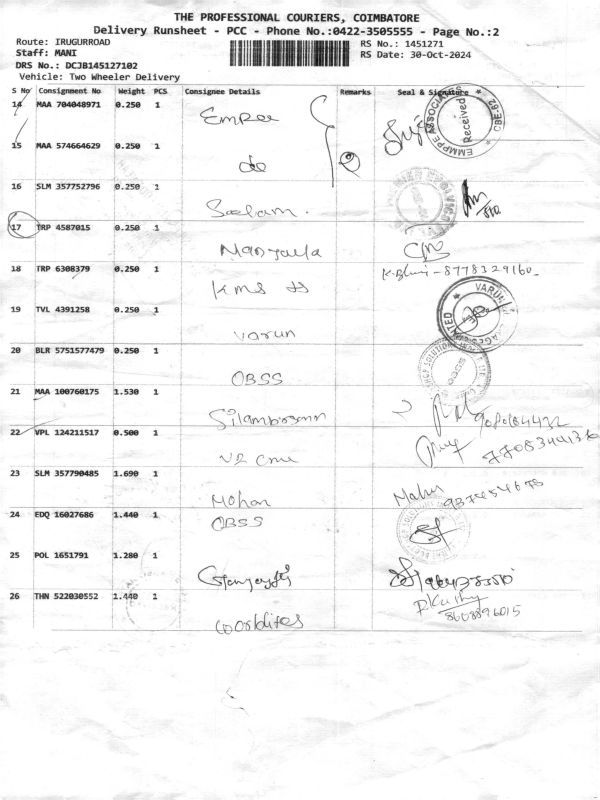 THE PROFESSIONAL COURIERS, COIMBATORE
Delivery Runsheet - PCC - Phone No.:0422-3505555 - Page No.:2
Route: IRUGURROAD
Staff: MANI
DRS No.: DCJB145127102
Vehicle: Two Wheeler Delivery
RS No.: 1451271
RS Date: 30-Oct-2024
S No Consignment No Weight PCS Consignee Details Remarks Seal & Signature
14 MAA 704048971 0.250 1
15 MAA 574664629 0.250 1 do
16 SLM 357752796 0.250 1 Saelam.
17 TRP 4587015 0.250 1
18 TRP 6308379 0.250 1 KMS K.Bhuvi - 8778329160
19 TVL 4391258 0.250 1 Varun
20 BLR 5751577479 0.250 1 OBSS
21 MAA 100760175 1.530 1
22 VPL 124211517 0.500 1
23 SLM 357790485 1.690 1 Mohan
24 EDQ 16027686 1.440 1 OBSS
25 POL 1651791 1.280 1
26 THN 522030552 1.440 1 8608896015
Received
CBE-62
VARUN